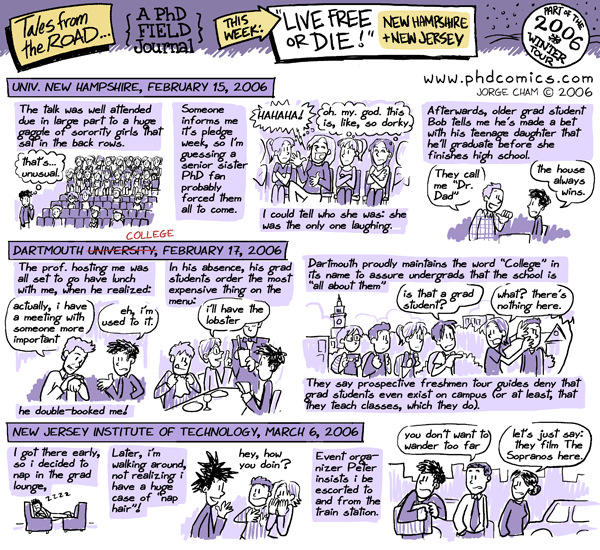 Tales from
the ROAD...
A PhD
FIELD
Journal
THIS
WEEK:
"LIVE FREE
OR DIE!"
NEW HAMPSHIRE
+NEW JERSEY
PART OF THE
2006
WINTER
TOUR
www.phdcomics.com
JORGE CHAM © 2006
UNIV. NEW HAMPSHIRE, FEBRUARY 15, 2006
The talk was well attended
due in large part to a huge
gaggle of sorority girls that
sat in the back rows.
that's...
unusual.
Someone
informs me
it's pledge
week, so I'm
guessing a
senior sister
PhD fan
probably
forced them
all to come.
HAHAHA!
oh. my. god. this
is, like, so dorky.
I could tell who she was: she
was the only one laughing.
Afterwards, older grad student
Bob tells me he's made a bet
with his teenage daughter that
he'll graduate before she
finishes high school.
They call
me "Dr.
Dad"
the house
always
wins.
COLLEGE
DARTMOUTH UNIVERSITY, FEBRUARY 17, 2006
The prof. hosting me was
all set to go have lunch
with me, when he realized:
actually, i have
a meeting with
someone more
important
eh, i'm
used to it.
he double-booked me!
In his absence, his grad
students order the most
expensive thing on the
menu:
i'll have the
lobster
Dartmouth proudly maintains the word "College" in
its name to assure undergrads that the school is
"all about them"
is that a grad
student?
what? there's
nothing here.
They say prospective freshmen tour guides deny that
grad students even exist on campus (or at least, that
they teach classes, which they do).
NEW JERSEY INSTITUTE OF TECHNOLOGY, MARCH 6, 2006
I got there early,
so i decided to
nap in the grad
lounge,
zzzz
Later, i'm
walking around,
not realizing i
have a huge
case of "nap
hair"!
hey, how
you doin'?
Event orga-
nizer Peter
insists i be
escorted to
and from the
train station.
you don't want to
wander too far
let's just say:
they film The
Sopranos here.